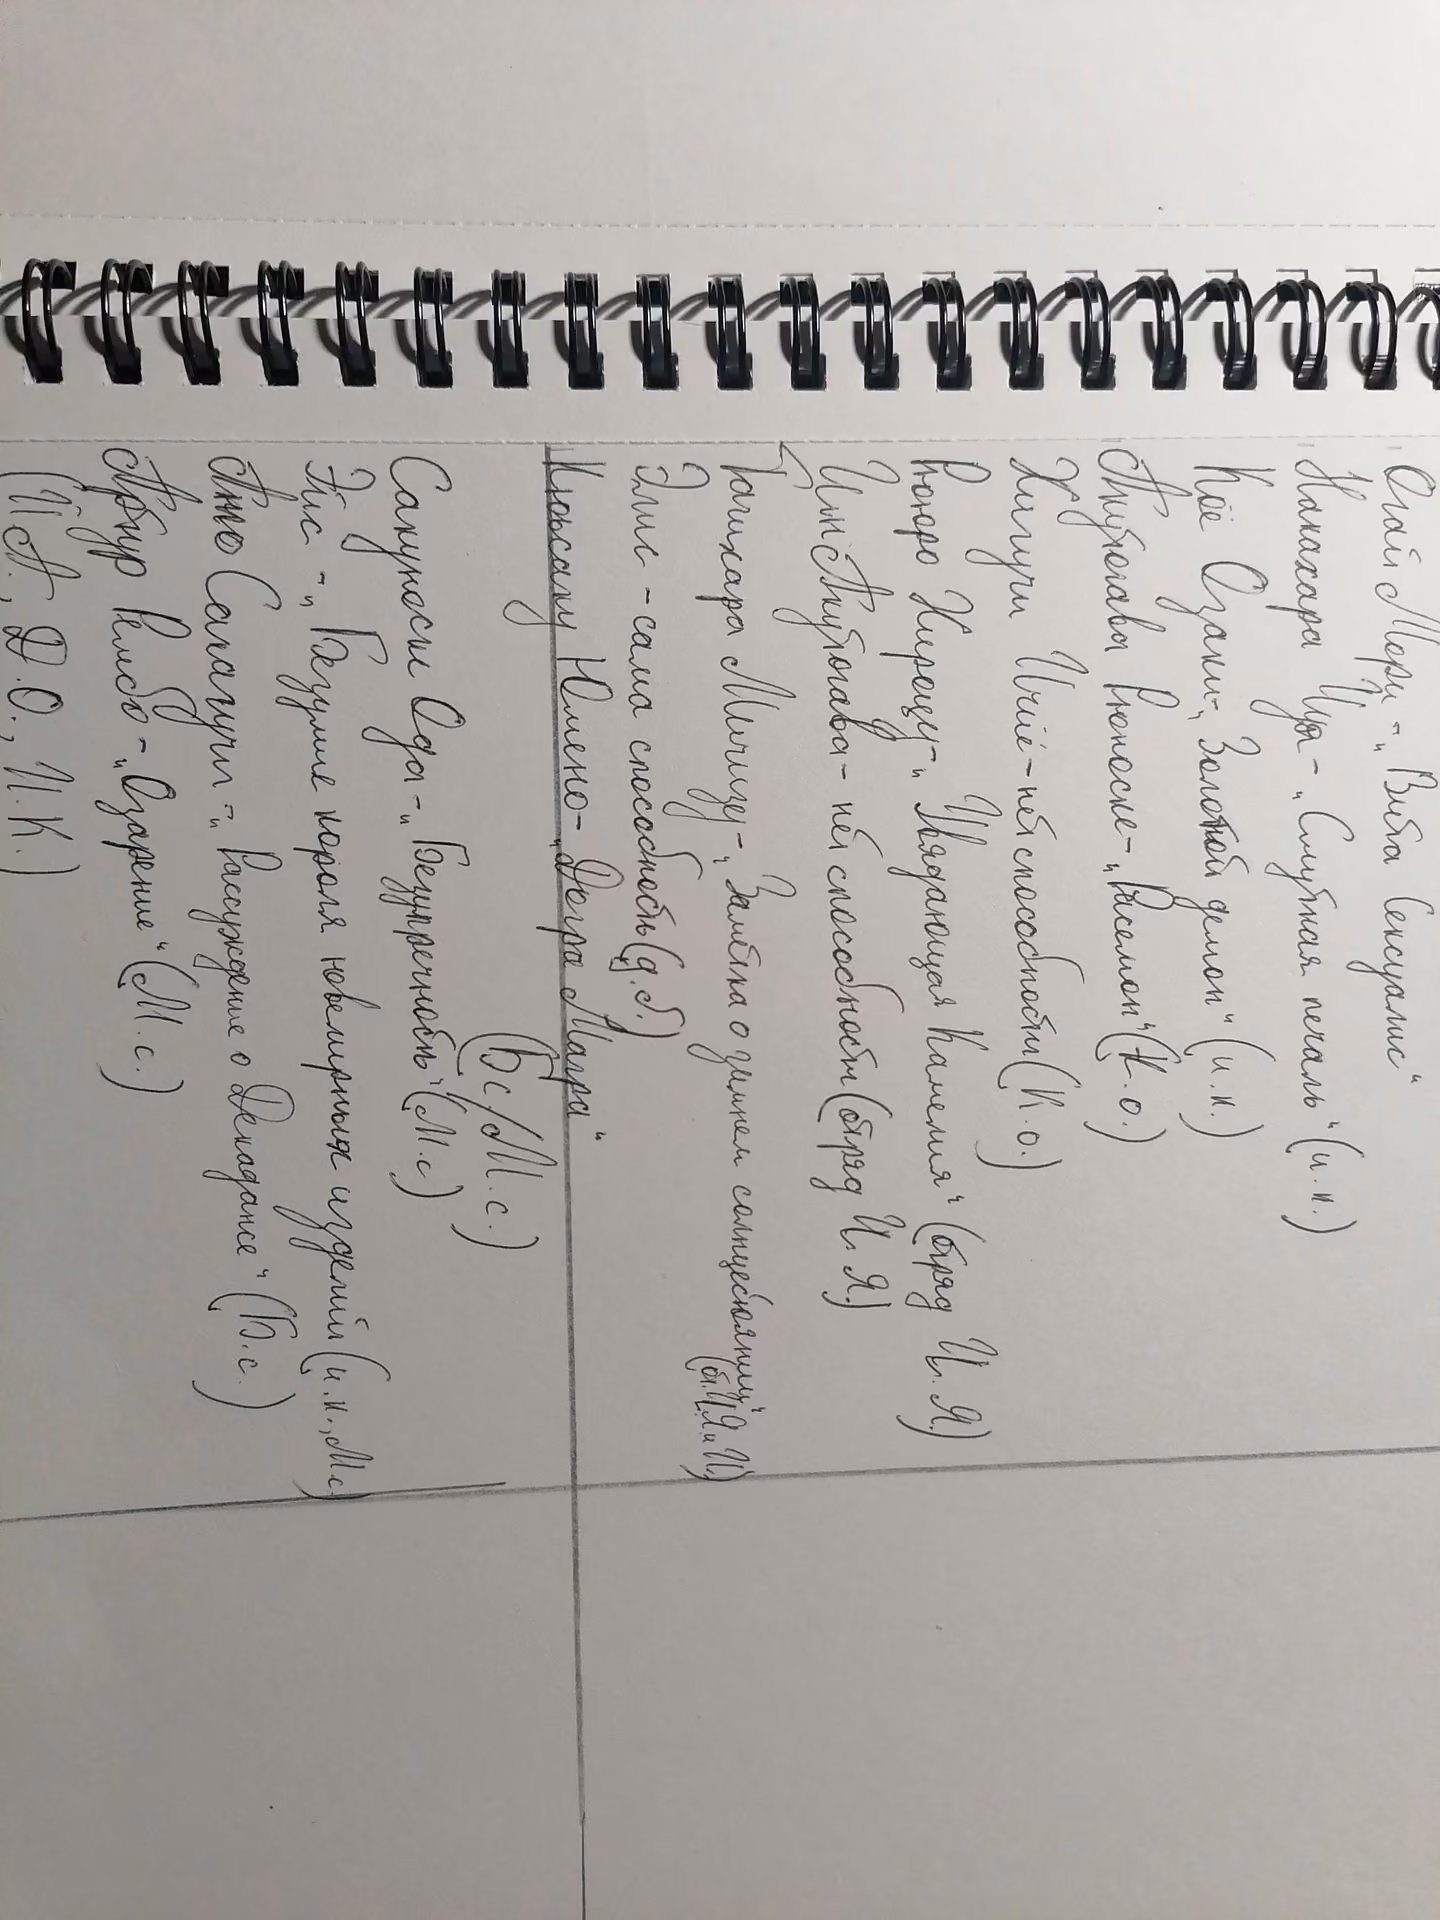 Огай Мори - „Вита Сексуалис“
Накахара Чуя - „Смутная печаль“ (и.к.)
Коё Озаки - „Золотой демон“ (и.к.)
Акутогава Рюноске - „Расемон“ (К.о.)
Хигучи Ичиё - нет способности (К.о.)
Рюоро Хироцу - „Увядающая Камелия“ (отряд Ч. Я.)
Гин Акутогава - нет способности (отряд Ч. Я.)
Тачихара Мичизу - „Заметка о зимнем солнцестоянии“
Элис - сама способность (д.б.)
Кюсаку Юмено - „Догра Магра“
(Б.с/М.с.)
Сакуноске Ода - „Безупречность“ (М.с)
Эйс - „Безумие короля ювелирных изделий (и.к., М.с)
Анго Сакагучи - „Рассуждение о Декадансе“ (Б.с.)
Артур Рембо - „Озарение“ (М.с.)
(Ч.А., Д.О., Н.К.)